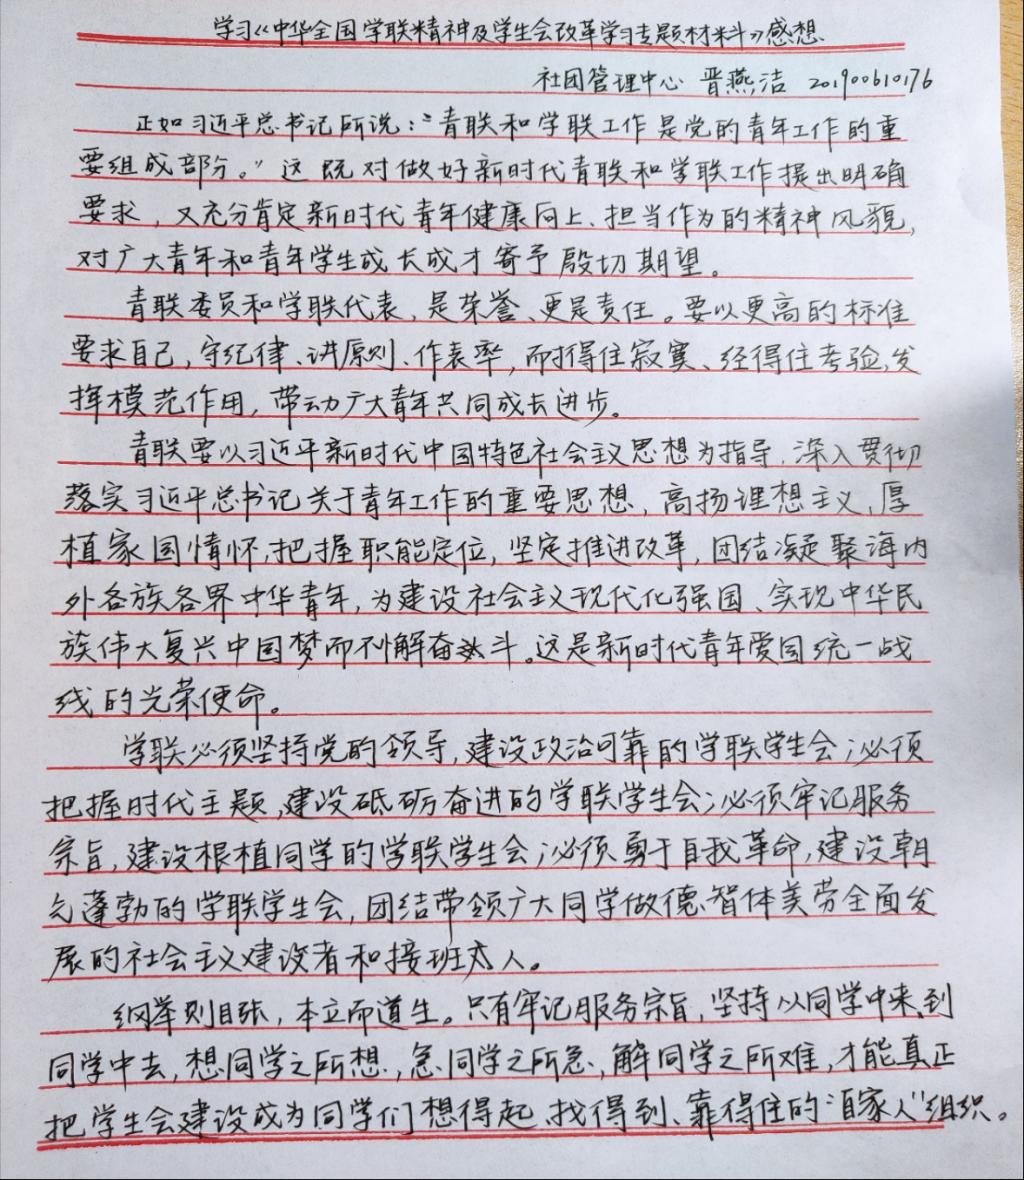 学习《中华全国学联精神及学生会改革学习专题材料》感想
社团管理中心 晋燕洁 201900610176
正如习近平总书记所说:“青联和学联工作是党的青年工作的重
要组成部分。”这既对做好新时代青联和学联工作提出明确
要求,又充分肯定新时代青年健康向上、担当作为的精神风貌,
对广大青年和青年学生成长成才寄予殷切期望。
青联委员和学联代表,是荣誉、更是责任。要以更高的标准
要求自己,守纪律、讲原则、作表率,耐得住寂寞、经得住考验,发
挥模范作用,带动广大青年共同成长进步。
青联要以习近平新时代中国特色社会主义思想为指导,深入贯彻
落实习近平总书记关于青年工作的重要思想,高扬理想主义,厚
植家国情怀,把握职能定位,坚定推进改革,团结凝聚海内
外各族各界中华青年,为建设社会主义现代化强国、实现中华民
族伟大复兴中国梦而不懈奋斗。这是新时代青年爱国统一战
线的光荣使命。
学联必须坚持党的领导,建设政治可靠的学联学生会;必须
把握时代主题,建设砥砺奋进的学联学生会;必须牢记服务
宗旨,建设根植同学的学联学生会;必须勇于自我革命,建设朝
气蓬勃的学联学生会,团结带领广大同学做德智体美劳全面发
展的社会主义建设者和接班人。
纲举则目张,本立而道生。只有牢记服务宗旨,坚持从同学中来、到
同学中去,想同学之所想,急同学之所急,解同学之所难,才能真正
把学生会建设成为同学们想得起、找得到、靠得住的“自家人”组织。